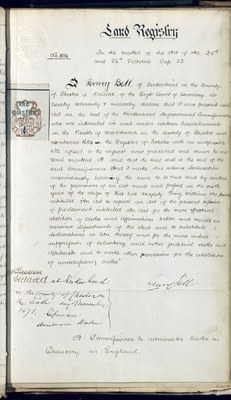 Land Registry
In the matter of the Act of the 25th
and 26th Victoria Cap 53
I Henry Bell of Birkenhead in the County
of Chester a Solicitor of the High Court of Chancery do
hereby solemnly and sincerely declare that I was present and
did see the seal of the Birkenhead Improvement Commissioners
who are interested in land under certain
in the Parish of in the County of Chester and
numbered in the Register of Estates with an indefeasible
title affixed to the request now produced and shewn to me
and marked A and that the said seal is the seal of the
said Commissioners And I make this solemn declaration
conscientiously believing the same to be true and by virtue
of the provisions of an Act made and passed in the sixth
year of the reign of His late Majesty King William the fourth
intituled "An Act to repeal an Act of the present session
of parliament intituled "An Act for the more effectual
abolition of oaths and affirmations taken and made in
various departments of the state and to substitute
declarations in lieu thereof and for the more entire
suppression of voluntary and extra judicial oaths and
affidavits and to make other provisions for the abolition
of unnecessary oaths"
Declared at Birkenhead
in the County of Chester
this day of November
1871
Before me
Henry Bell
A Commissioner to administer Oaths in
Chancery in England.